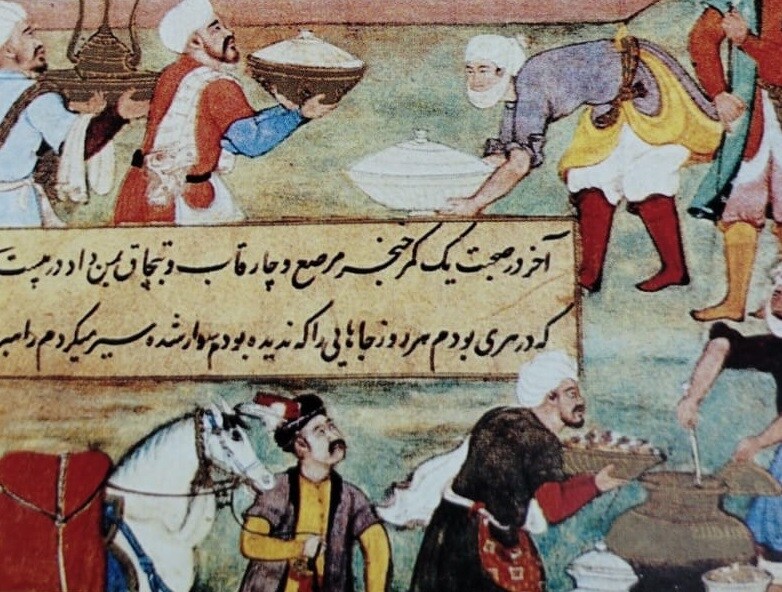 آخر در صحبت یک کمر خنجر مرصع و چار قاب و تپچاق بمن داد در بیست
که در هری بودم هر روز جاهایی را که ندیده بودم سوار شده سیر میکردم را